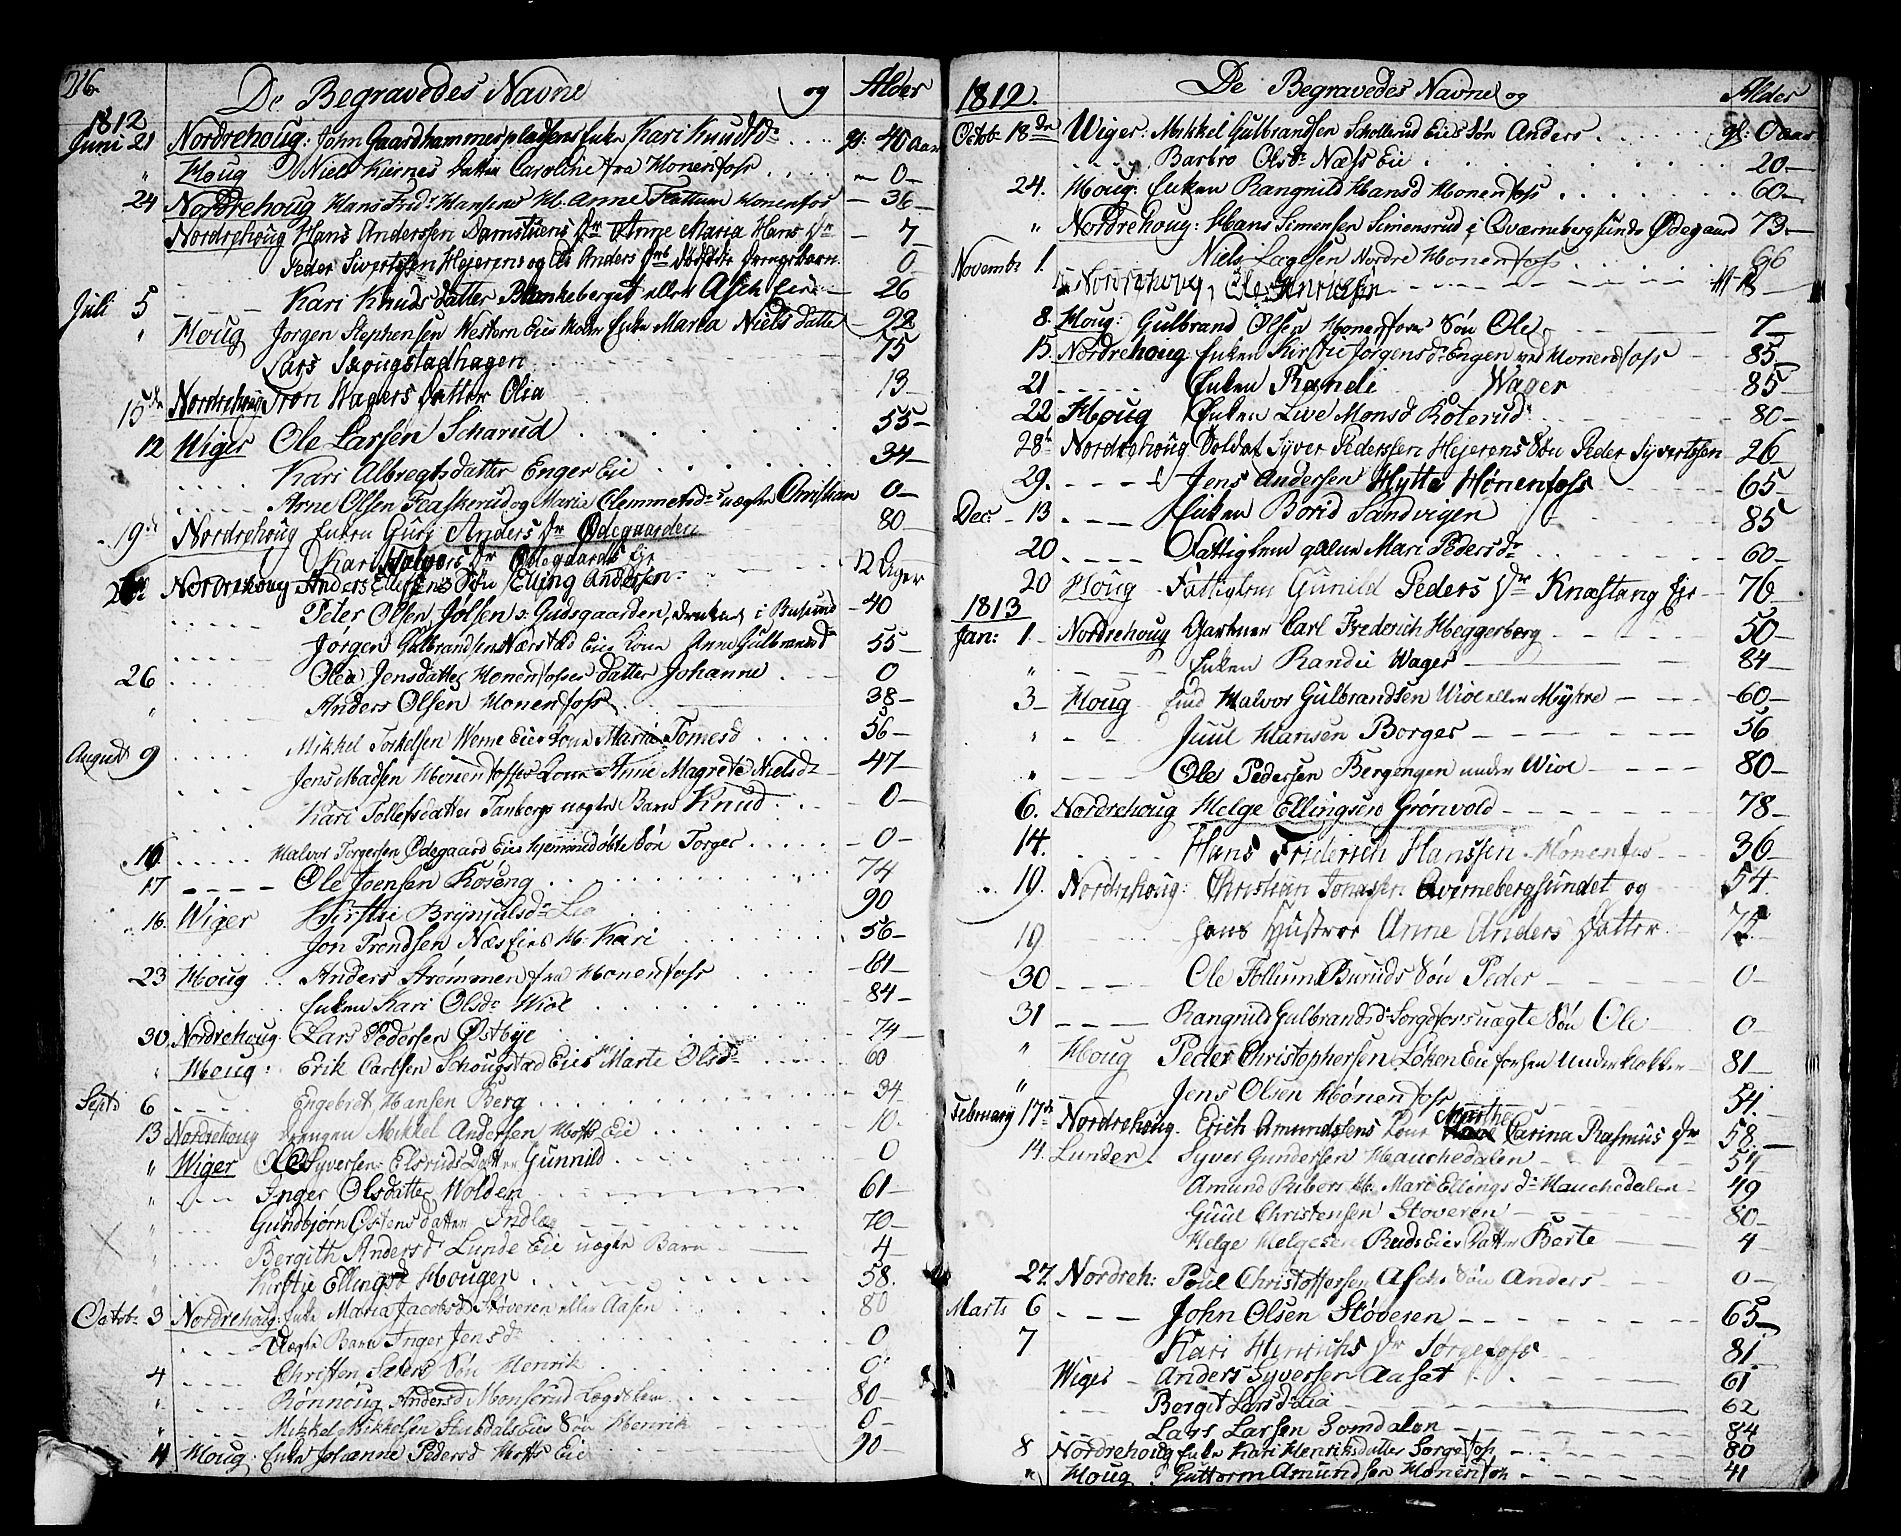 216
De Begravedes Navne og Alder
1812
Juni 21 Nordrehoug: John Gaardhammerpladsens Enke Kari Knudsdr gl: 40 aar
" Houg Niels Kiernes Datter Caroline fra Honenfoss 0
24 Nordrehoug Hans Fridr Hansens H. Anne Flattum Honenfos 36
Nordrehoug Hans Anderssen Damstuens Dr Anne Maria Hans Dr 7
Peder Sivertssen Hejerens og Els Anders Drs dödfödte drengebarn 0
Juli 5 Kari Knuds datter Blinkeberget eller Asch Eie 26
" Houg Jorgen Stephensen Western Eies Moder Enke Maria Niels datter 92
Lars Skougstadhagen 75
15de Nordrehoug Tron Wagers Datter Olia 13
12 Wiger Ole Larssen Scharud 55
Kari Albregtsdatter Enger Eie 34
Arne Olsen Flaskerud og Marie Clemmetsdr uægte Christian 0
19de Nordrehoug Enken Guri Anders Dr Ødegaarden 80
Kari Halvors Dr Ødegaards Eje 12 Dager
Nordrehoug Anders Ellefsens Søn Elling Andersen
Peter Olsen Jolsen s: Gudsgaarden, druknet i Busund 40
Jørgen Gulbrandsen Nærstad Eies Kone Anne Gulbrandsd 55
26 Olea Jensdatter Honenfosses datter Johanne 0
" Anders Olsen Honenfoss 38
August 9 Mikkel Torkelsen Werne Eies Kone Marie Tomesd 56
Jens Madsen Honenfosses Kone Anne Magrete Nielsdr 47
Kari Tollefsdatter Tanbergs uægte Barn Knud 0
16 Halvor Torgersen Ødegaard Eies hjemmedøbte Søn Torger 0
17 Ole Joensen Koseng 74
16. Wiger Kirstie Brynjulsdr Lia 90
Jon Trondsen Næs Eies H. Kari 56
23 Houg Anders Strømmen fra Honenfoss 61
Enken Kari Olsdr Wiol 84
30 Nordrehoug Lars Pedersen Østbye 74
" Houg: Erik Carlsen Schougstad Eies Marte Olsdr 60
Septb 6 Engebret Hansen Berg 34
13 Nordrehoug Drengen Mikkel Andersen Hofs Eie 10
" Wiger Ole Syversen Elsruds Datter Gunnild 0
" Inger Olsdatter Wolden 61
" Gundbjørn Østens datter Indlæg 70
" Bergith Andersd Lunde Eie uægte Barn 4
" Kirstie Ellingsd Houger 58
Octob: 3 Nordrehoug: Enke Maria Jacobsd Støveren eller Aasen 80
Uægte Barn Inger Jensdr 0
4 Christen Sælers Søn Henrik 0
" Rönnoug Andersd Monserud Lægdslem 80
" Mikkel Mikkelsen Stubdals Eies Søn Henrik 0
11 Houg: Enke Johanne Pedersd Hoffs Eie 90
1812. De Begravedes Navne og Alder
Octob: 18de Wiger: Mikkel Gulbrandsen Schollerud Eies Søn Anders gl: 0 aar
Barbro Olsdr Næss Eie 20
24. Houg: Enken Rangnild Hansd Honenfoss 60
" Nordrehoug: Hans Simensen Simensrud i Qværnebergsunds Ødegaard 73
Novembr 1. Niels Lagesen Nordre Honenfoss 66
Nordrehoug, Ole Henrichsen
8. Houg: Gulbrand Olsen Honenfoses Søn Ole 7
15. Nordrehoug Enken Kirstie Jorgensdr Engen ved Honenfoss 85
21 Enken Randi Wager 85
22 Houg Enken Live Monsd Roterud 80
28 Nordrehoug Soldat Syver Pederssen Hejerens Søn Peder Syvertsen 26
29. Jens Andersen Hytte Hønenfoss 65
Decr 13 Enken Borid Sandvigen 85
20 Fattiglem galne Mari Pedersdr 60
20 Houg Fattiglem Gunild Peders Dr Knæstang Eje 76
1813
Jan: 1 Nordrehoug Gartner Carl Frederich Heggerberg 50
" Enken Randie Wager 84
3 Houg Eind Halvor Gulbrandsen Wiol eller Myhre 60
" Juul Hansen Borger 56
" Ole Pedersen Bergengen under Wiol 80
6. Nordrehoug Helge Ellingsen Grønvold 78
14. Hans Friderich Hanssen Hönenfos 36
19. Nordrehoug: Christian Jonassen Qvernebergsundet og 54
19 hans Hustroe Anne Anders Datter
30 Ole Follum Buruds Søn Peder 0
31 Rangnild Gulbrandsdr Sorgefoss uægte Søn Ole 0
" Houg Peder Christophersen Løken Eie forhen Underklokker 81
" Jens Olsen Hönenfoss 51.
Februarij 17de Nordrehoug. Erich Amundsens Kone Marthe Carina Rasmus Dr 58
14. Lunder. Syver Gundersen Hauchedalen 54
Amund Rubers H. Mari Ellings dr Hauchedalen 49
Guul Christensen Stoveren 80
Helge Helgesen Ruds Eies Datter Berte 4
27. Nordreh: Poul Christoffersen Aschs Søn Anders 0
Marti 6 John Olsen Støveren 65
7 Kari Henrichs Dr Sørgefoss 81
Wiger Anders Syversen Aaset 61
Bergit Larsdr Lia 62
Lars Larsen Somdalen 84
8 Nordrehoug Enke Kari Henriksdatter Sorgefoss 80
" Houg Guttorm Amundsen Honenfoss 41